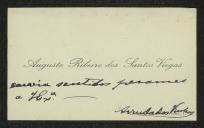 Augusto Ribeiro dos Santos Viegas
envia sentidos pesames
a V. Ex.ª